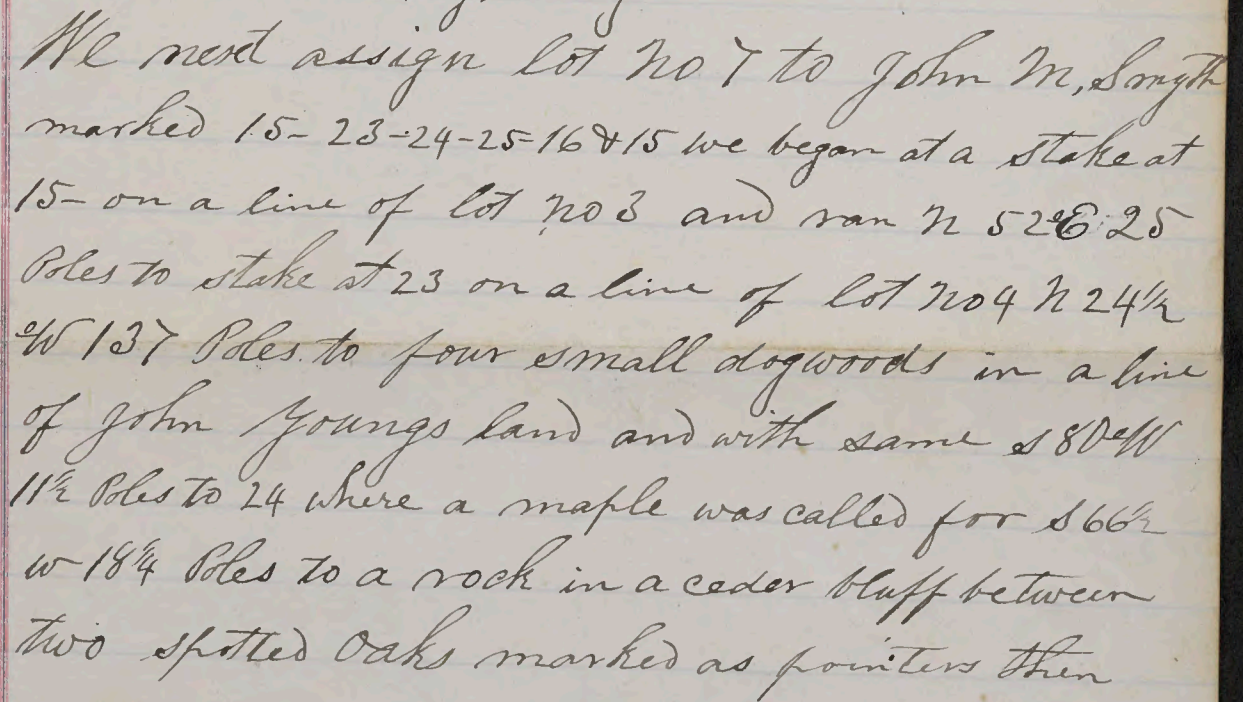 We next assign lot No 7 to John M, Smyth
marked 15- 23-24-25-16 & 15 we began at a stake at
15- on a line of lot No 3 and ran N 52° E 25
Poles to stake at 23 on a line of lot No 4 N 24 1/2
° W 137 Poles to four small dogwoods in a line
of John Youngs land and with same S 80° W
11 1/2 Poles to 24 where a maple was called for S 66 1/2
W 18 1/4 Poles to a rock in a ceder bluff between
two spotted Oaks marked as pointers then